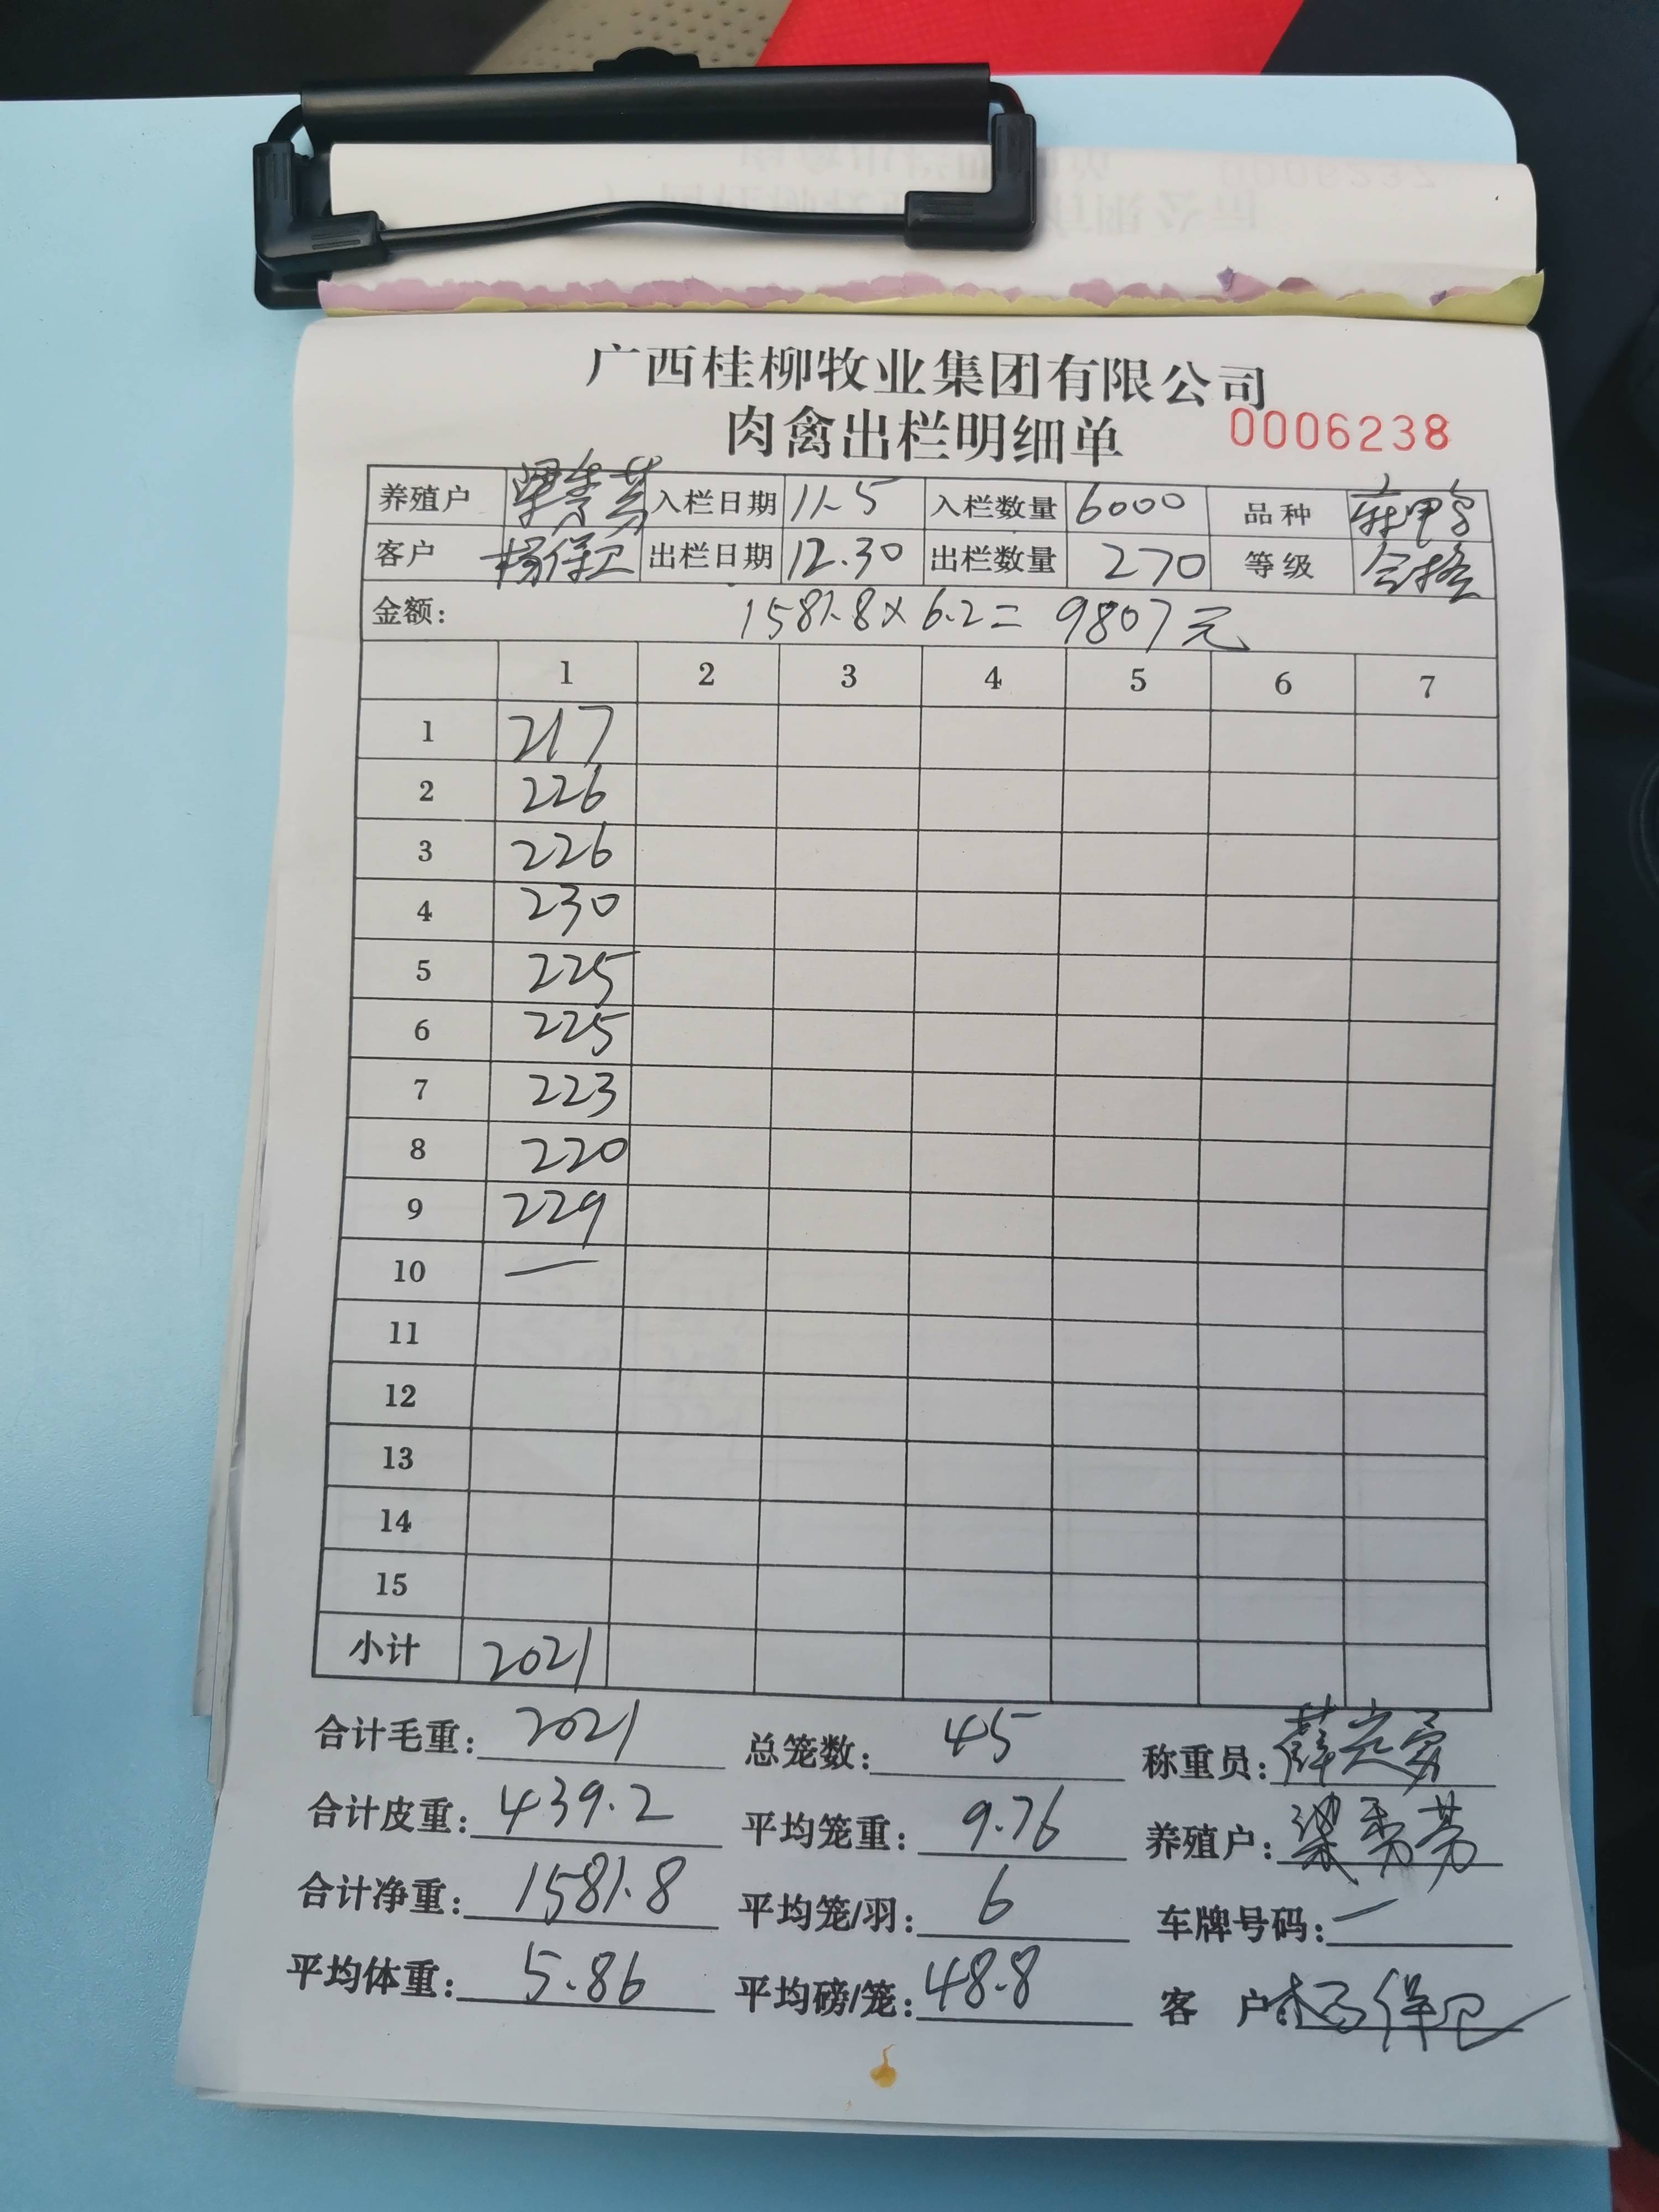 广西桂柳牧业集团有限公司
肉禽出栏明细单 0006238
养殖户 梁秀芳 入栏日期 11.5 入栏数量 6000 品种 麻鸭
客户 杨保卫 出栏日期 12.30 出栏数量 270 等级 合格
金额: 1581.8×6.2= 9807元
1 2 3 4 5 6 7
1 217
2 226
3 226
4 230
5 225
6 225
7 223
8 220
9 229
10 —
11
12
13
14
15
小计 2021
合计毛重: 2021 总笼数: 45 称重员: 薛
合计皮重: 439.2 平均笼重: 9.76 养殖户: 梁秀芳
合计净重: 1581.8 平均笼/羽: 6 车牌号码: —
平均体重: 5.86 平均磅/笼: 48.8 客 户: 杨保卫